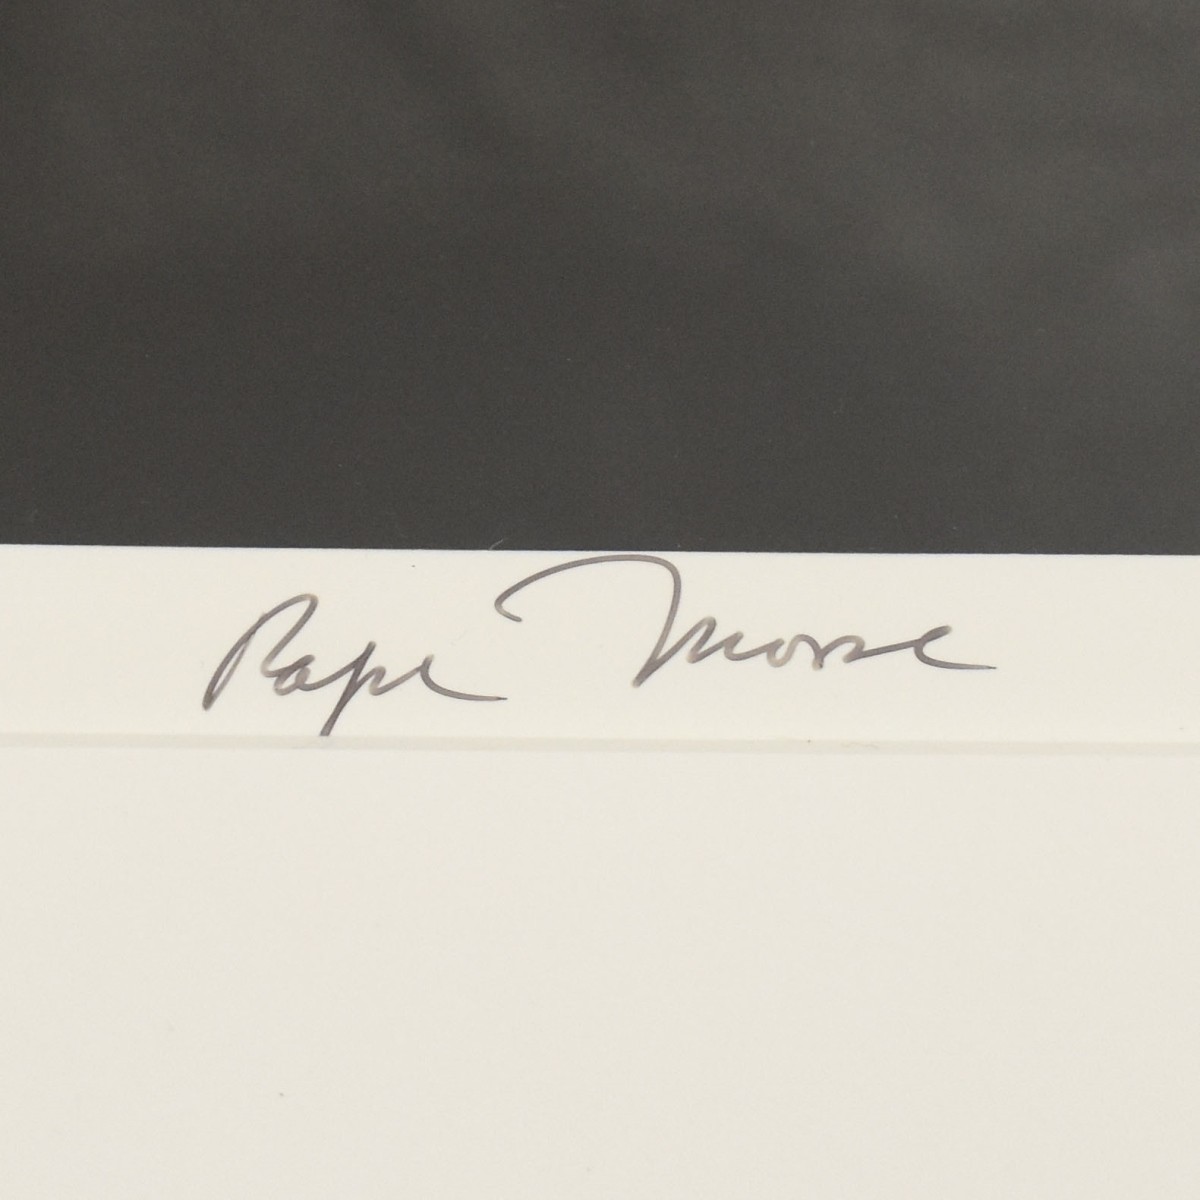 Ralph Morse